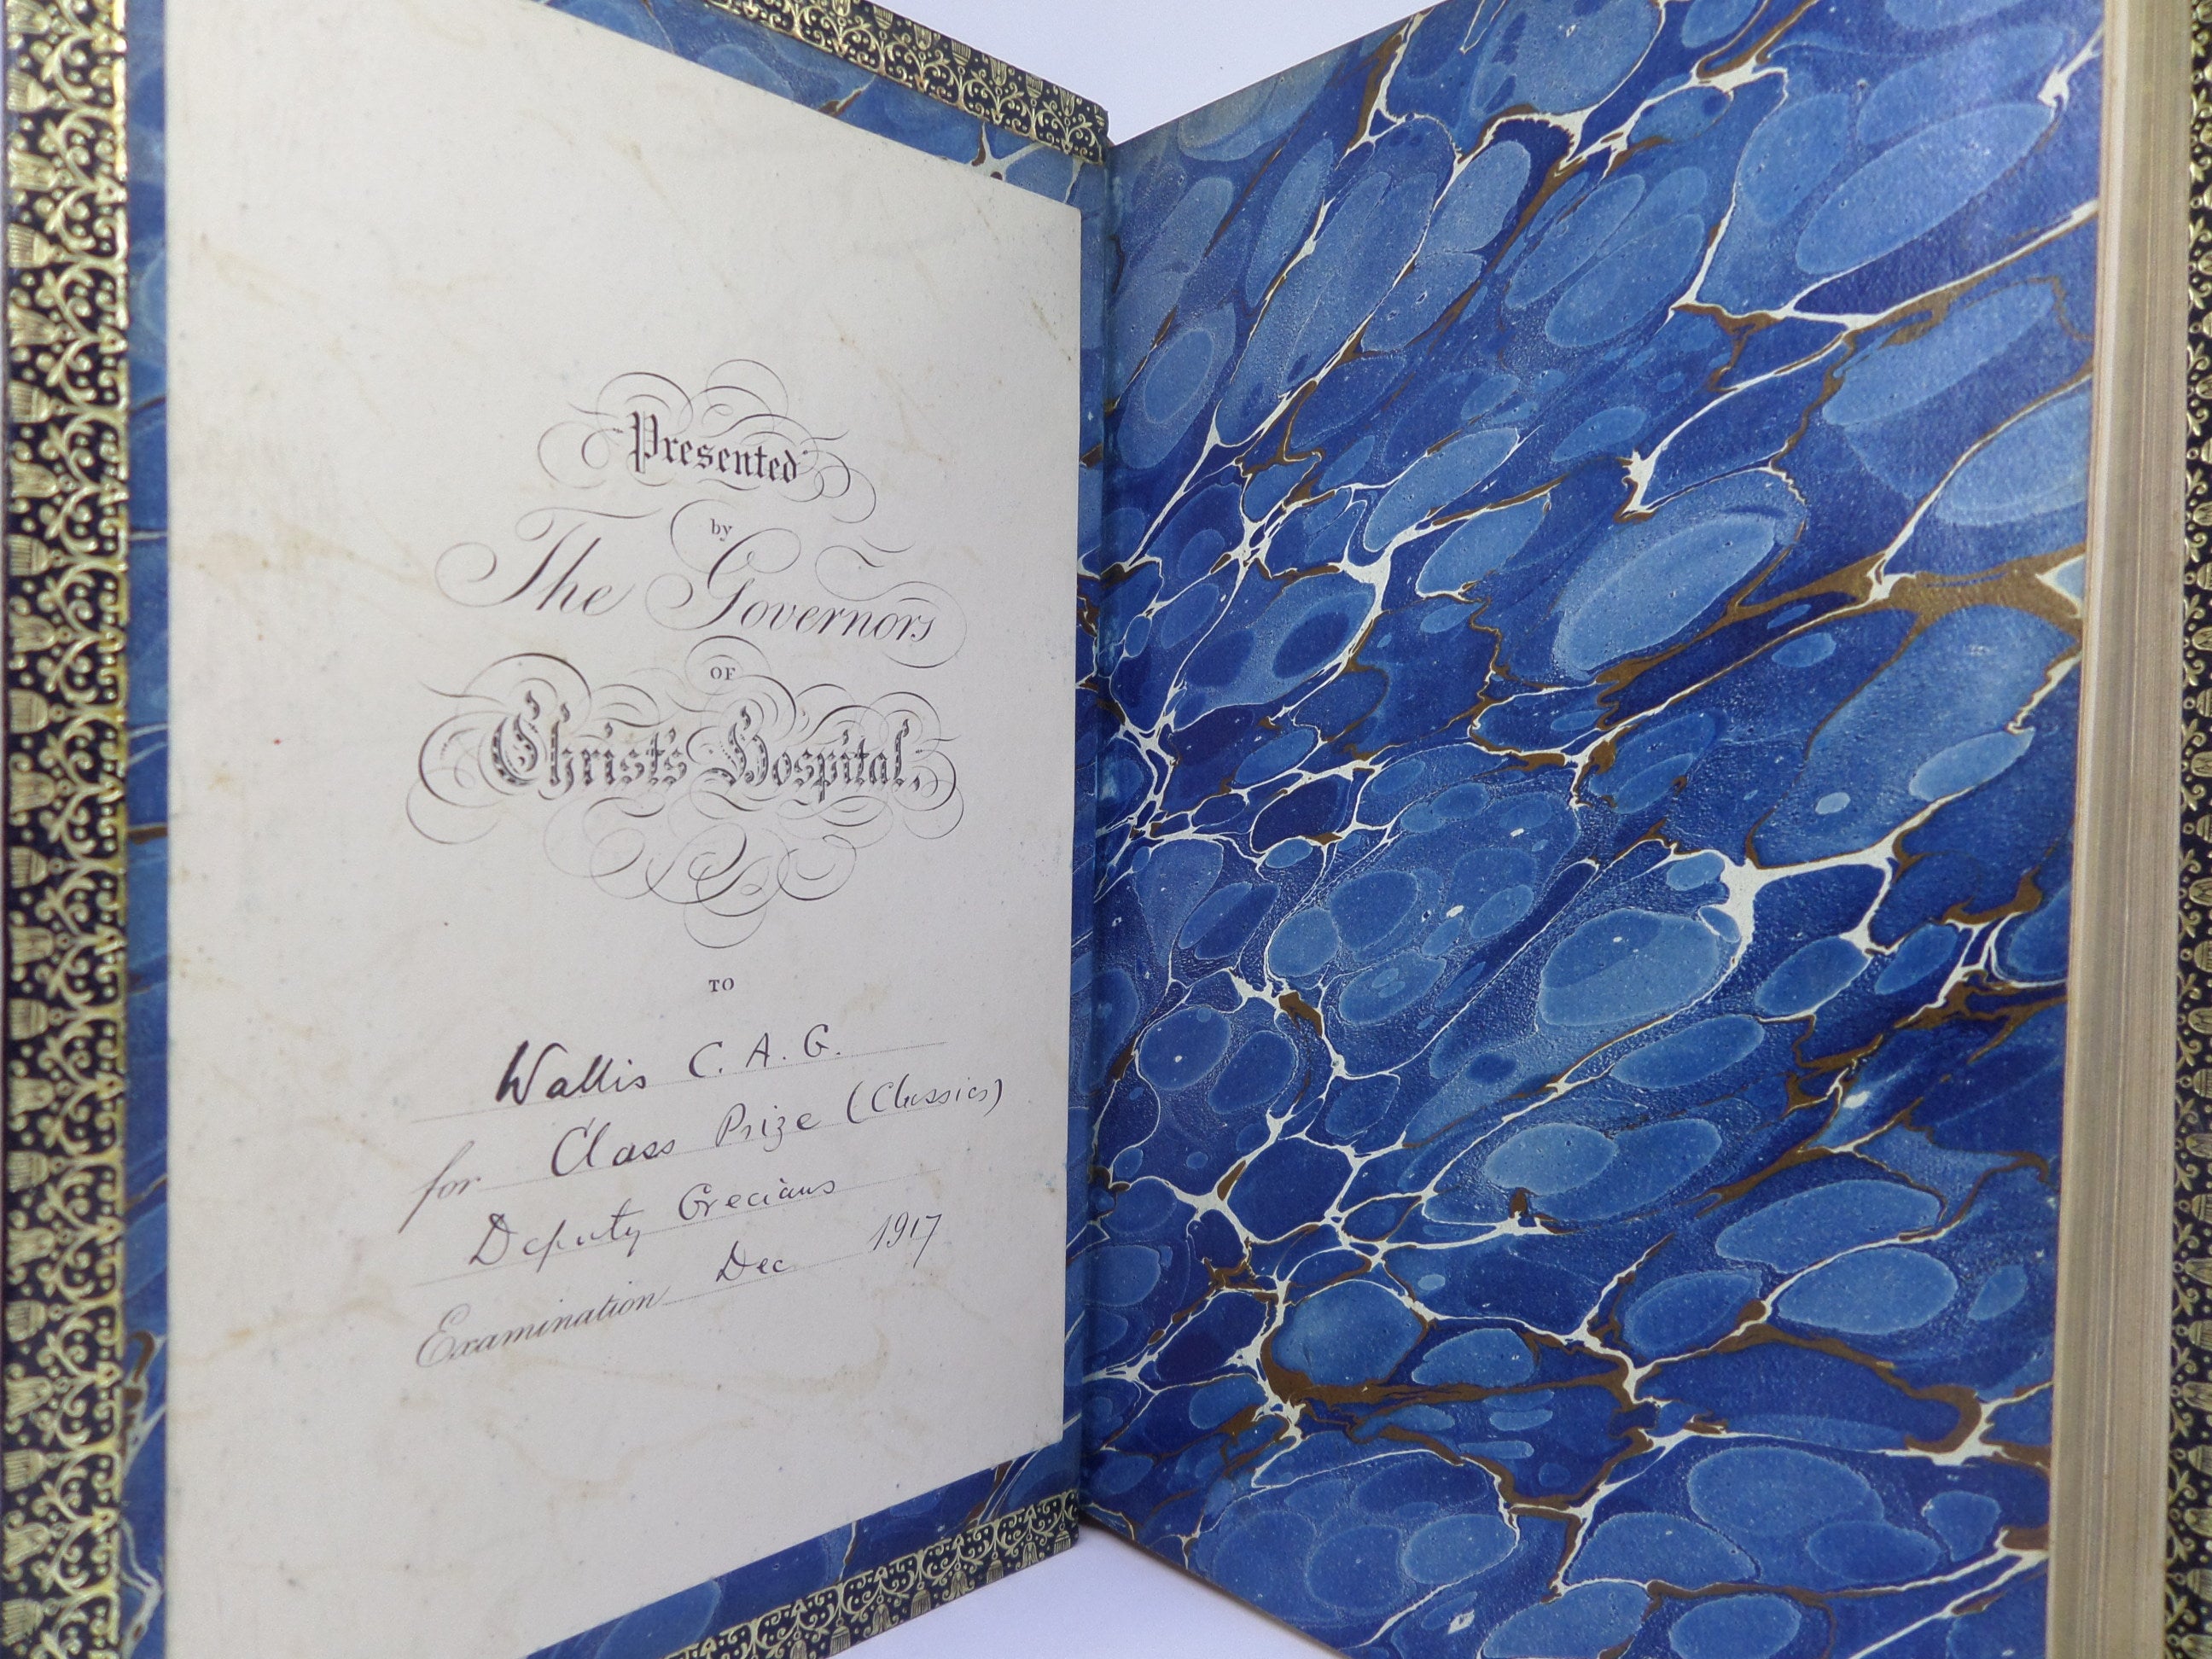 Presented
by
The Governors
OF
Christ's Hospital,
TO
Wallis C. A. G.
for Class Prize (Classics)
Deputy Grecians
Examination Dec 1917